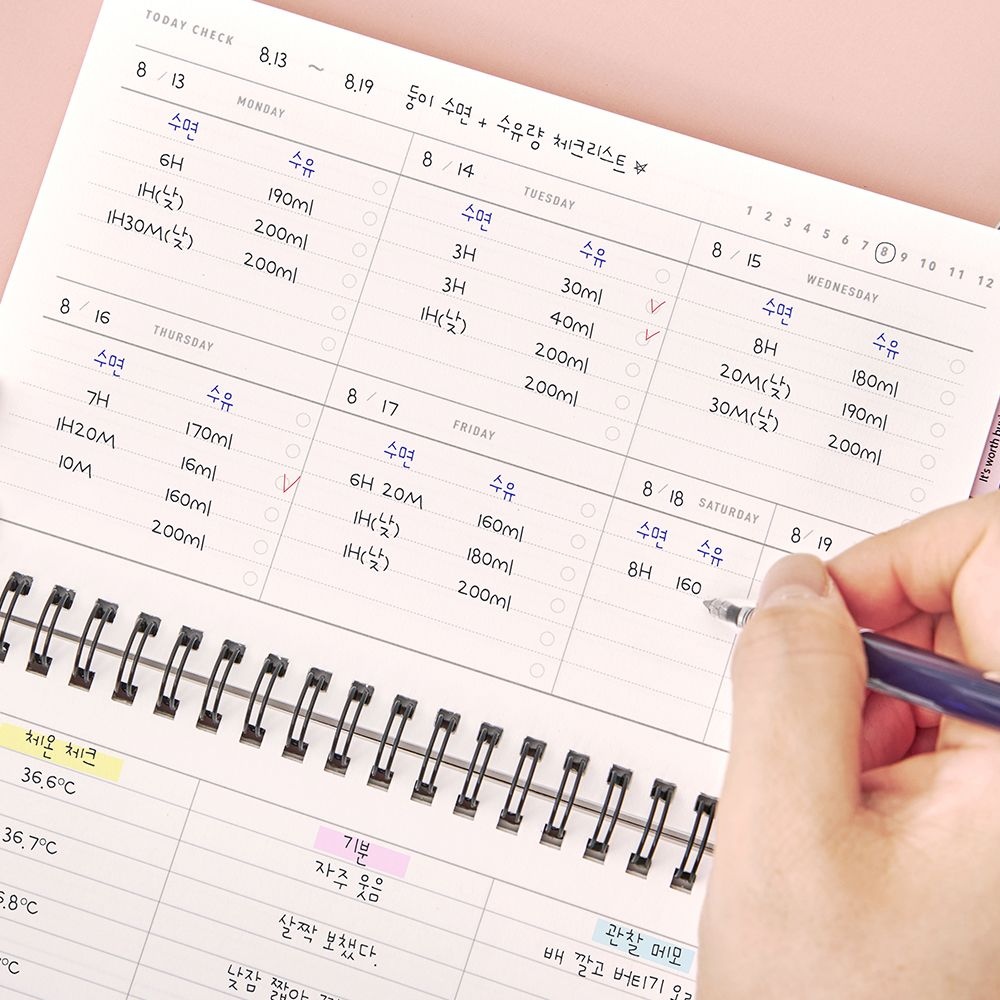 TODAY CHECK 8.13 ~ 8.19 둥이 수면 + 수유량 체크리스트 ☆
1 2 3 4 5 6 7 8 9 10 11 12
8 / 13 MONDAY
수면 수유
6H 190ml
1H(낮) 200ml
1H30M(낮) 200ml
8 / 14 TUESDAY
수면 수유
3H 30ml
3H 40ml
1H(낮) 200ml
200ml
8 / 15 WEDNESDAY
수면 수유
8H 180ml
20M(낮) 190ml
30M(낮) 200ml
8 / 16 THURSDAY
수면 수유
7H 170ml
1H20M 16ml
10M 160ml
200ml
8 / 17 FRIDAY
수면 수유
6H 20M 160ml
1H(낮) 180ml
1H(낮) 200ml
8 / 18 SATURDAY
수면 수유
8H 160
8 / 19
It's worth
체온 체크
36.6°C
36.7°C
6.8°C
°C
기분
자주 웃음
살짝 보챘다.
낮잠
관찰 메모
배 깔고 버티기